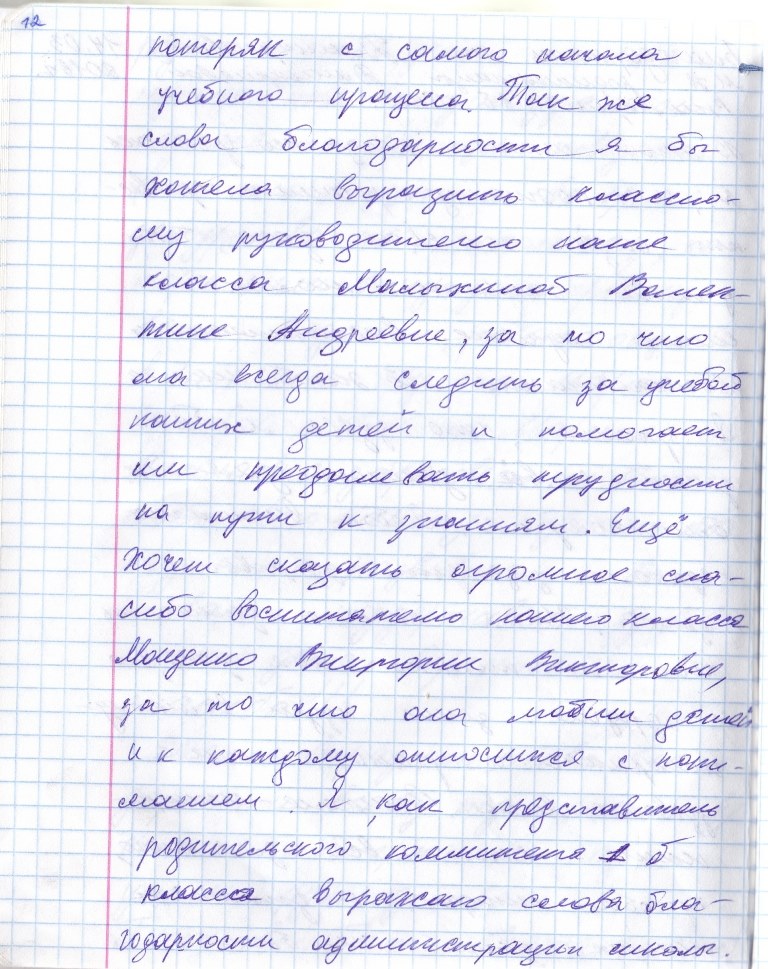 12
потеряк с самого начала
учебного процеса. Так же
слова благодарности я бы
хотела выразить классно-
му руководителю наше
класса Малыхиной Вален-
тине Андреевне, за то что
она всегда следить за учебой
наших детей и помогает
им преодолевать трудности
на пути к знаниям. Ещё
хочет сказать огромное спа-
сибо воспитателю нашего класса
Мащенко Виктории Викторовне,
за то что она любит детей
и к каждому относится с пони-
манием. Я как представитель
родительского комминета 1 б
класса выражаю слова бла-
годарности администрации школы.